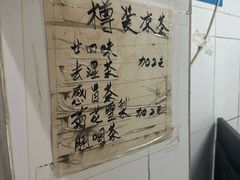 樽装凉茶
廿四味
去湿茶 加2元
感冒茶
菊花雪梨 加2元
咽茶